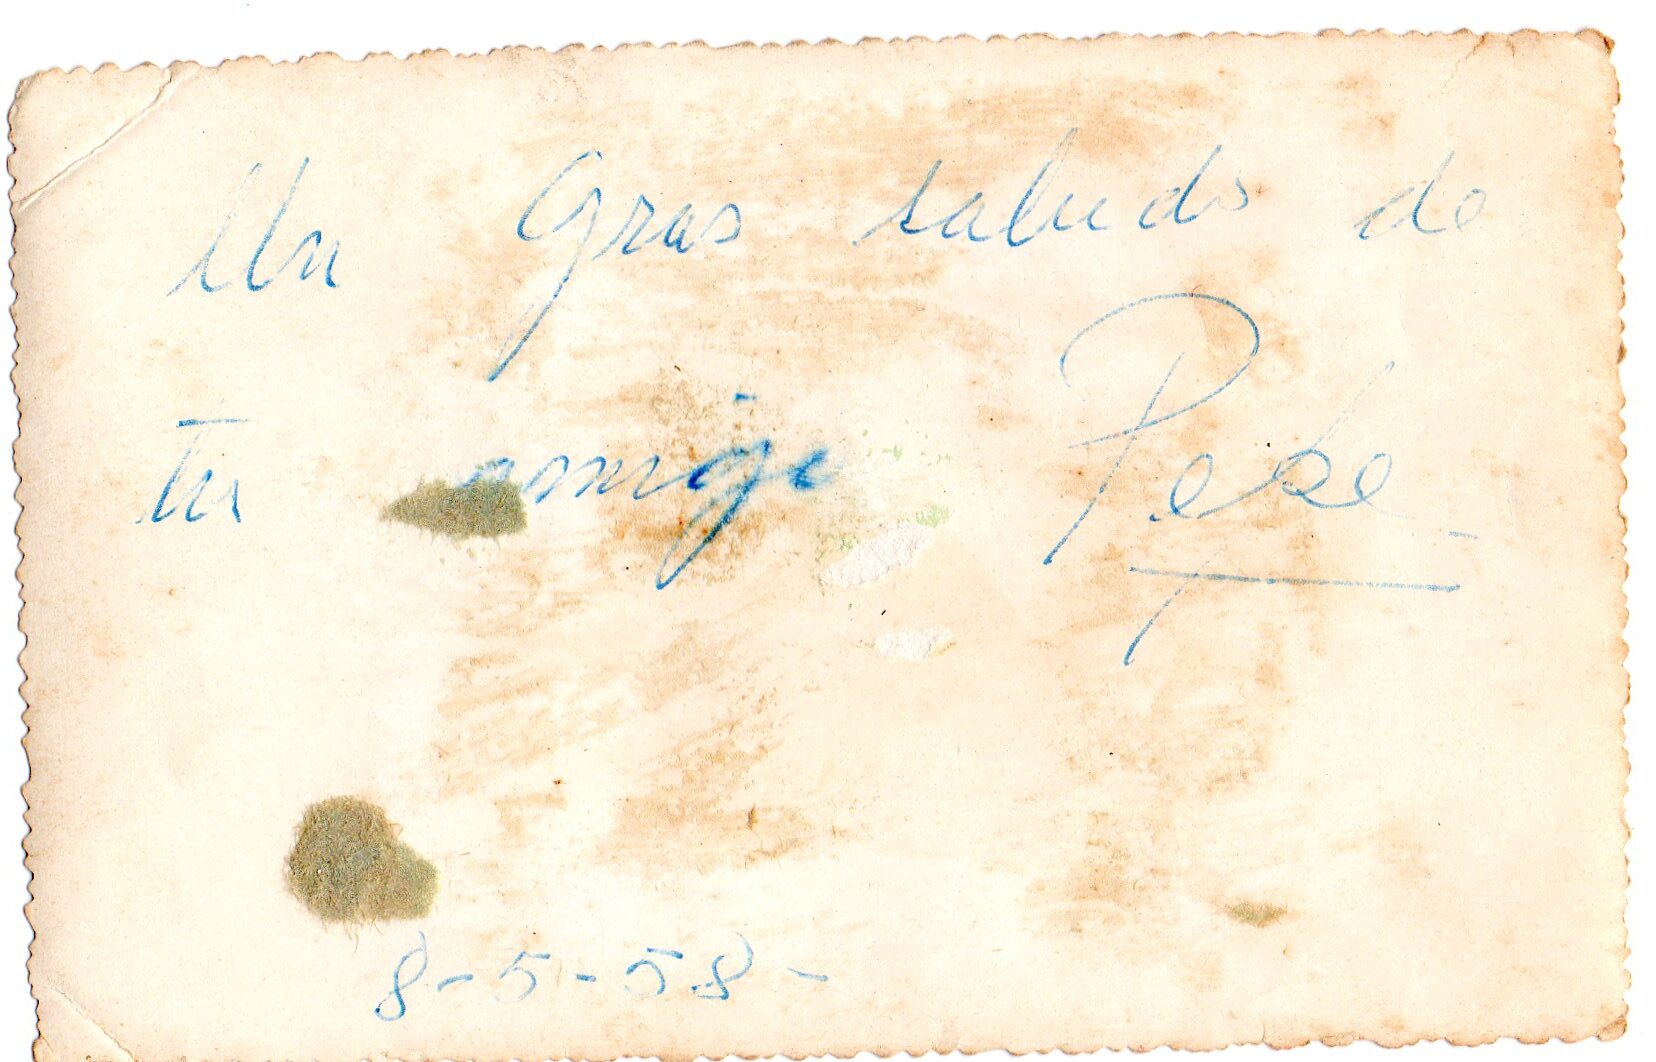 Un Gran saludo de
tu amigo Pebe
8-5-58-